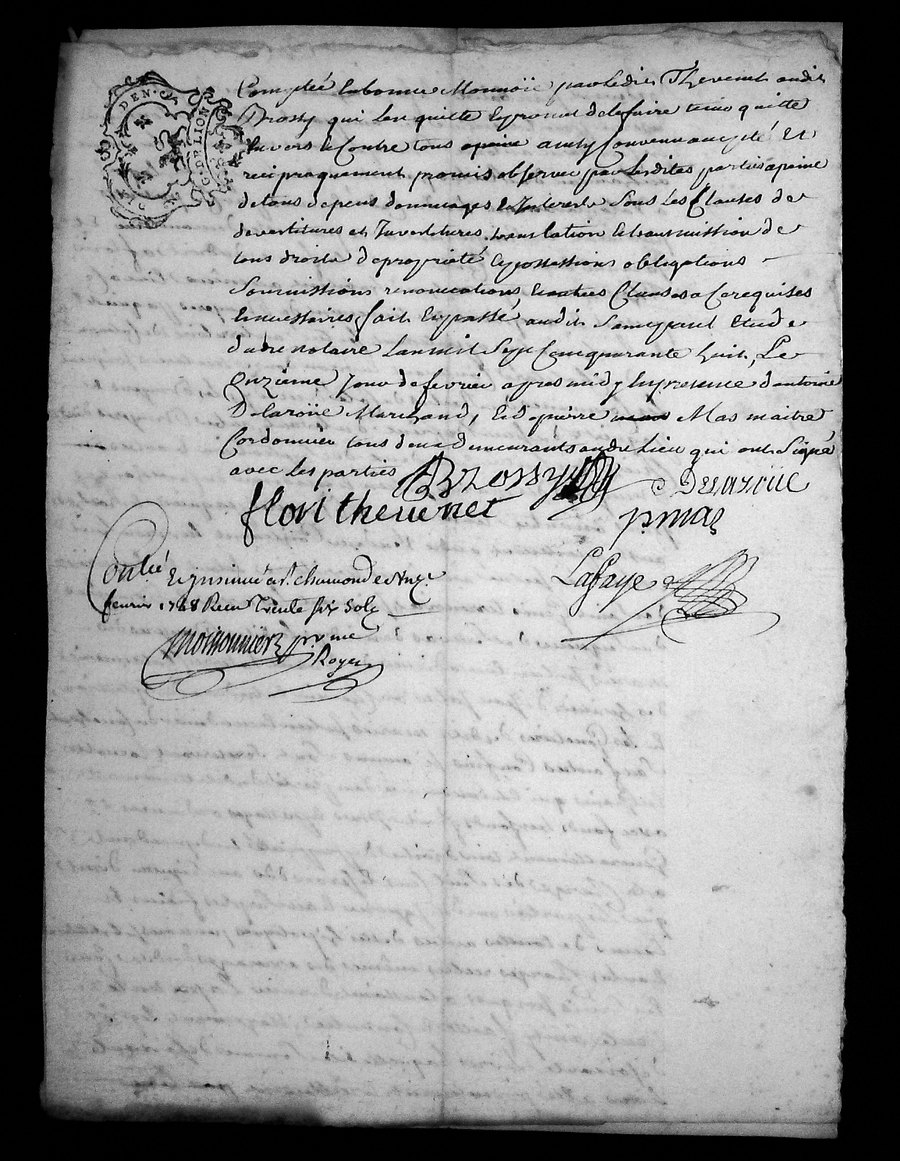 DEN.
G. DE LION
Comptée en bonne Monnoie par ledit Thevenet audit
Brossy qui l'en quitte et promet de le faire tenir quitte
Envers et Contre tous apeine ainsy Convenu accepté Et
reciproquement promis observer par lesdites parties apeine
de tous depens dommages et Interests Sous les Clauses de
devestitures et Investitures translation et transmission de
tous droits de proprieté et possessions obligations
Soumissions renonciations, et autres Clauses a ce requises
et necessaires, fait et passé audit Etude
dudit notaire L'an mil Sept Cent quarante huit, Le
onzieme Jour de fevrier apres midy En presence d'antoine
Delaroüe Marchand, et de pierre Mas maitre
Cordonnier tous deux demeurants audit Lieu qui ont Signé
avec les parties BROSSY Delaroüe
flori thevenet p mas
Conllé Lafaye
Et Insinué a St. chamond le
fevrier 1748 Receu trente six Sols
moissonnier pr. me
Royer